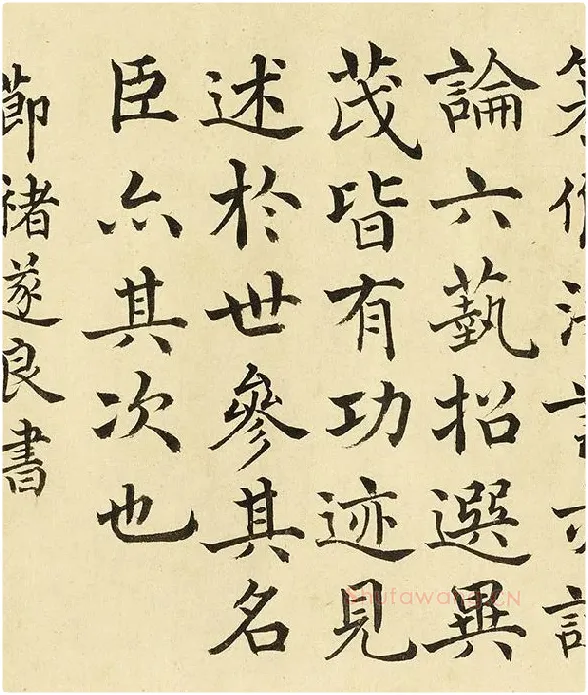 論六藝招選異
茂皆有功迹見
述於世參其名
臣亦其次也
節褚遂良書
shufawang.CN